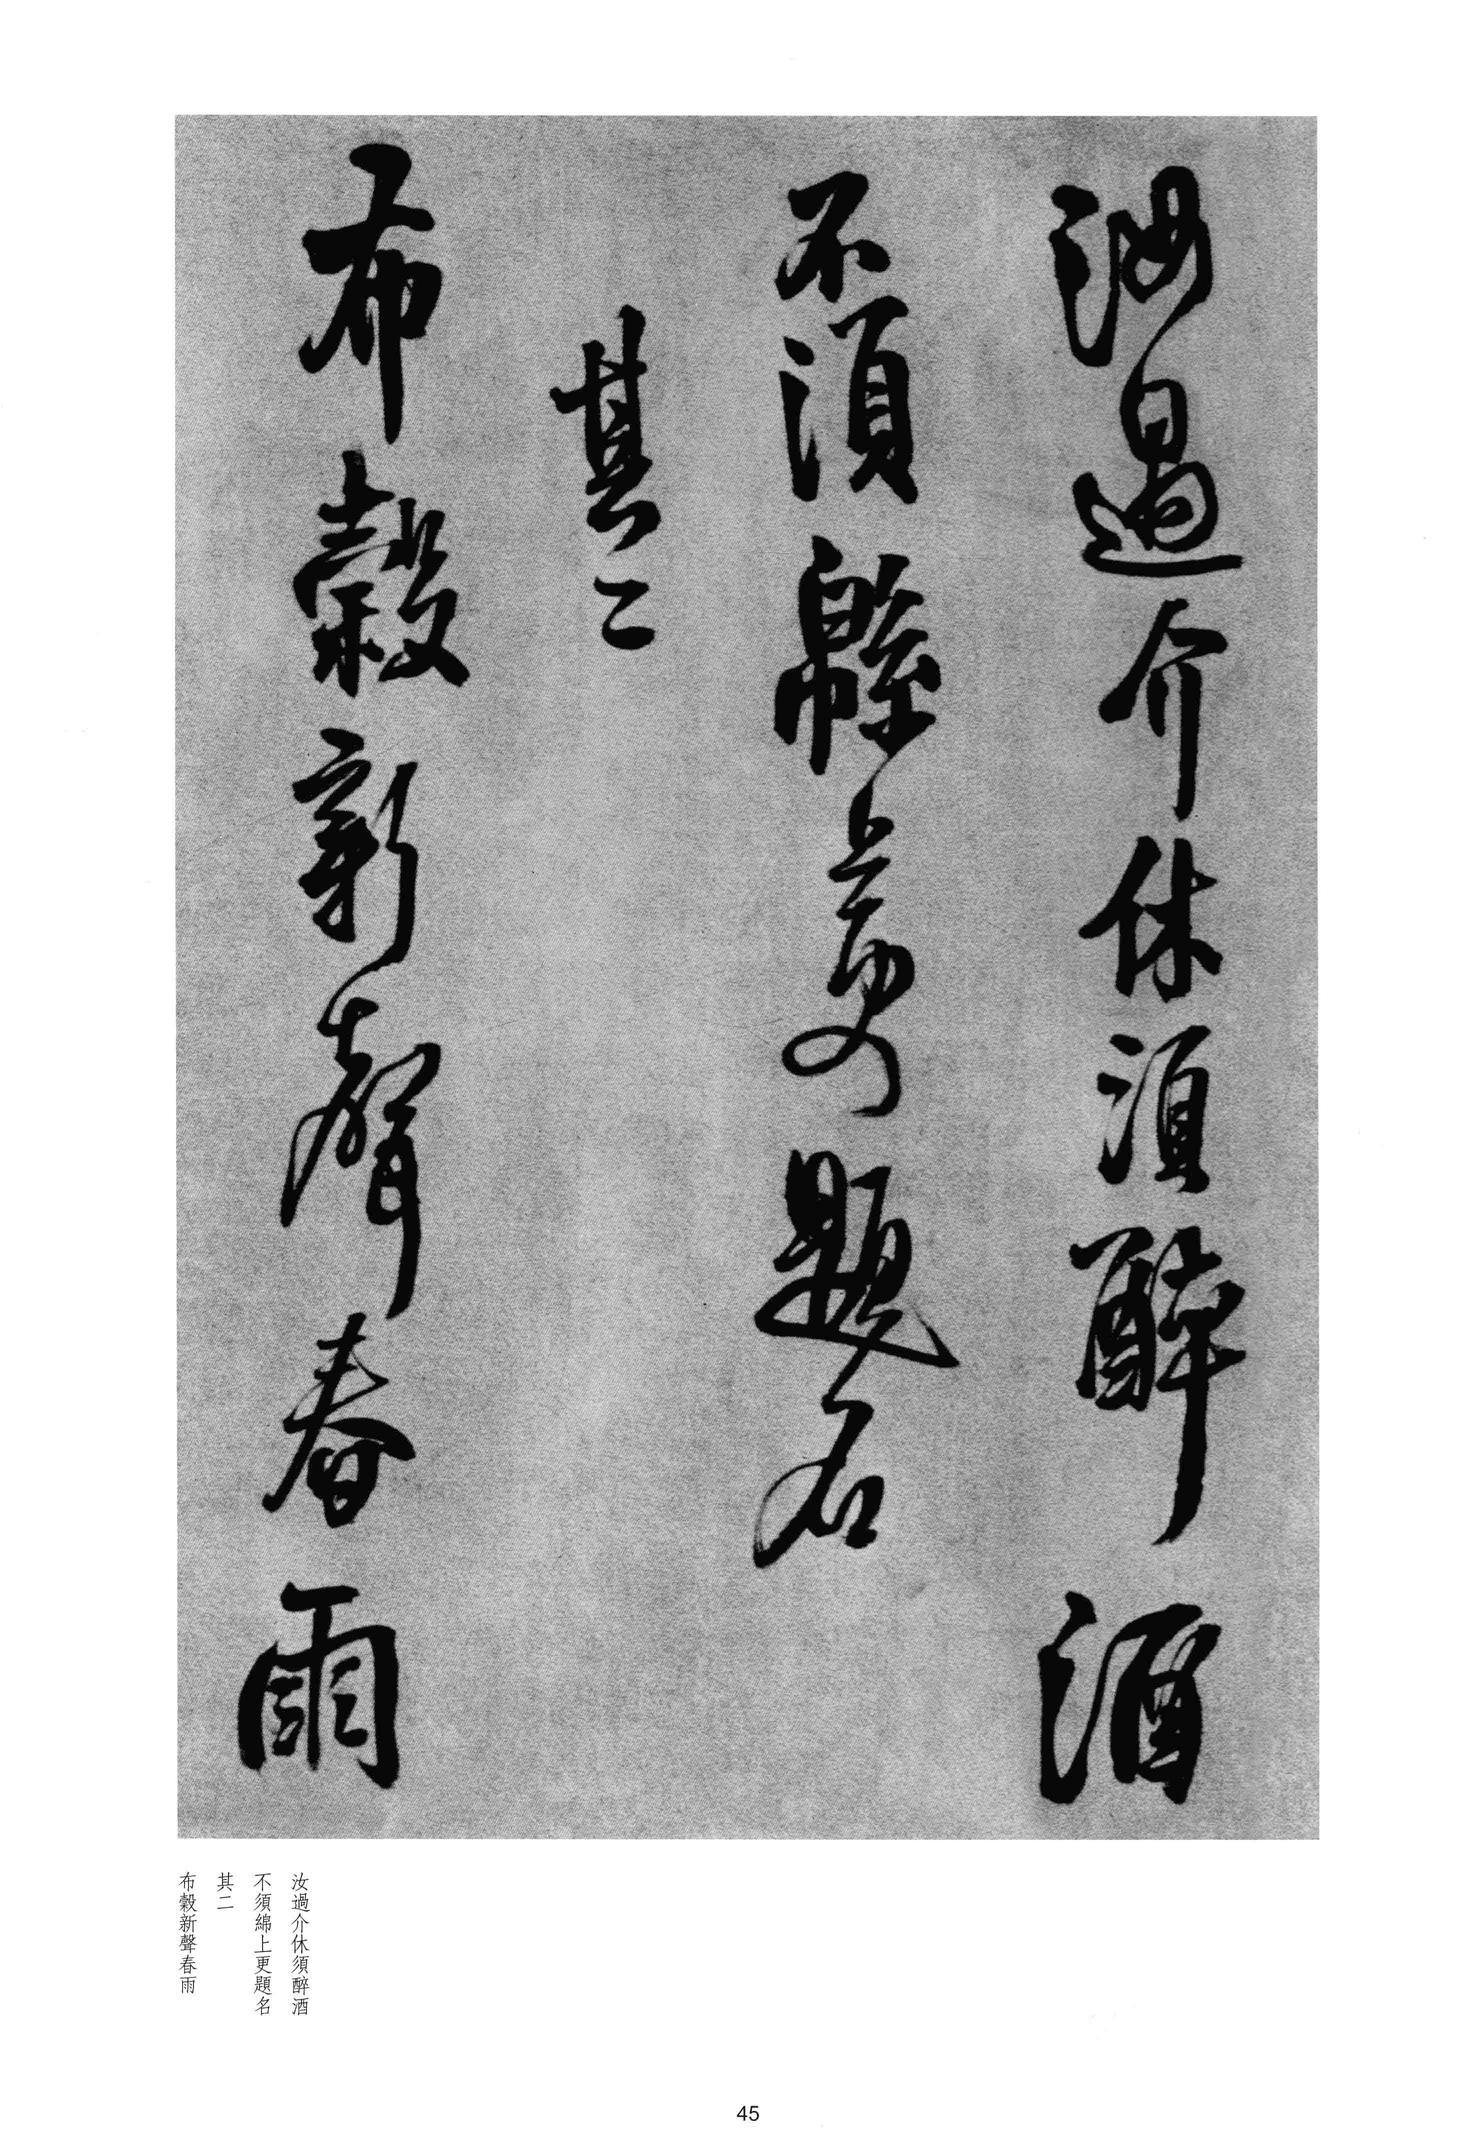 汝過介休須醉酒
不須緜上更題名
其二
布穀新聲春雨
汝過介休須醉酒
不須綿上更題名
其二
布穀新聲春雨
45